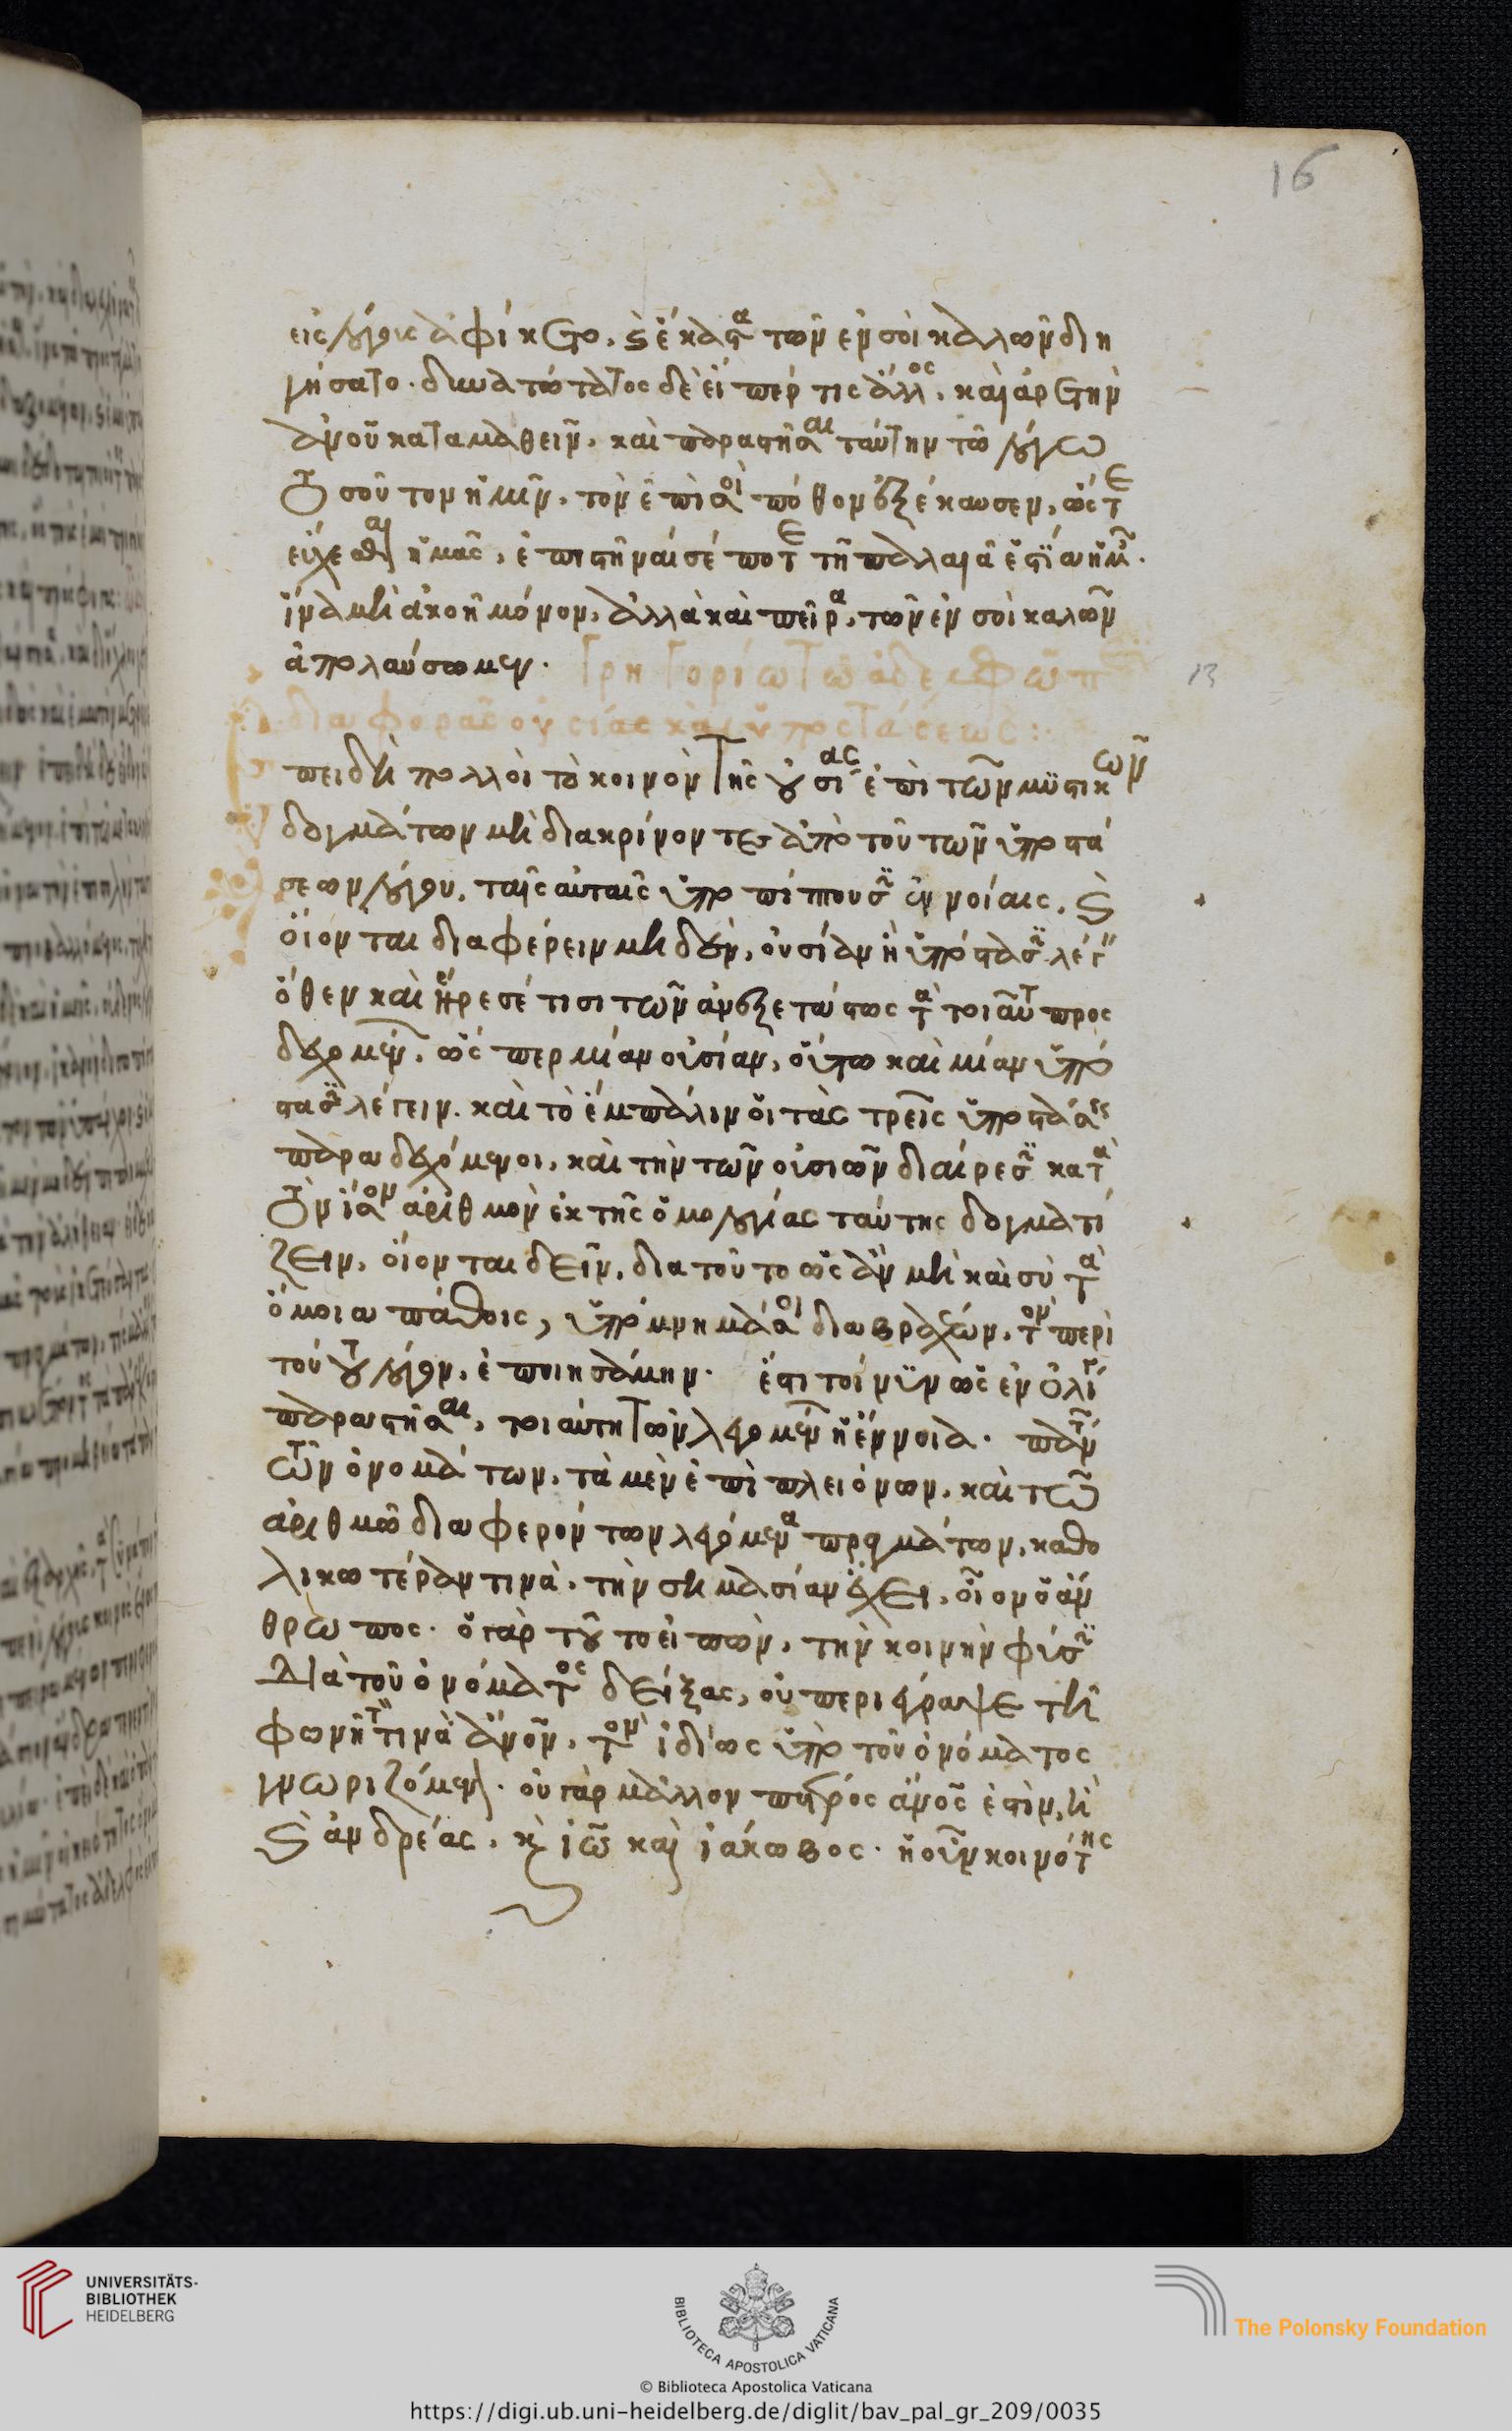 16
εἰς λόγους ἀφίκετο, καὶ ἕκαστα τῶν ἐν σοὶ καλῶν διη
γήσατο. δυνατώτατος δὲ εἴπερ τις ἄλλος, καὶ ἀρετὴν
ἀνοῦ καταμαθεῖν, καὶ παραστῆσαι ταύτην τῶ λόγω
τοσοῦτον ἡμῖν, τὸν ἐπὶ σοὶ πόθον ἐξέκαυσεν, ὥστε
εὔχεσθαι ἡμᾶς, ἐπιστῆναί σέ ποτε τῆ παλαιᾶ ἑστία ἡμῶν.
ἵνα μὴ ἀκοῆ μόνον, ἀλλὰ καὶ πεῖρα, τῶν ἐν σοὶ καλῶν
ἀπολαύσωμεν. Γρηγορίω τῶ ἀδελφῶ π
13
διαφορᾶς οὐσίας καὶ ὑποστάσεως:
πειδὴ πολλοὶ τὸ κοινὸν τῆς οὐσίας ἐπὶ τῶν μυστικῶν
δογμάτων μὴ διακρίνοντες ἀπὸ τοῦ τῶν ὑποστά
σεων λόγου, ταῖς αὐταῖς ὑποπίπτουσιν ἐννοίαις, καὶ
οἴονται διαφέρειν μηδὲν, οὐσίαν ἢ ὑπόστασιν λέγειν
ὅθεν καὶ ἤρεσέ τισι τῶν ἀνεξετάστως τὰ τοιαῦτα προς
δεχομένων, ὥσπερ μίαν οὐσίαν, οὕτω καὶ μίαν ὑπό
στασιν λέγειν. καὶ τὸ ἔμπαλιν οἱ τὰς τρεῖς ὑποστάσεις
παραδεχόμενοι, καὶ τὴν τῶν οὐσιῶν διαίρεσιν κατὰ
τὸν ἴσον ἀριθμὸν ἐκ τῆς ὁμολογίας ταύτης δογματί
ζειν, οἴονται δεῖν, δια τοῦτο ὡς ἂν μὴ καὶ σὺ τὰ
ὅμοια πάθοις, ὑπόμνημά σοι δια βραχέων, τὸν περὶ
τούτου λόγον, ἐποιησάμην. ἔστι τοίνυν ὡς ἐν ὀλίγω
παραστῆσαι, τοιαύτη τῶν λεγομένων ἡ ἔννοια. πάντων
τῶν ὀνομάτων, τὰ μὲν ἐπὶ πλειόνων, καὶ τῶ
ἀριθμῶ διαφερόντων λεγόμενα πραγμάτων, καθο
λικωτέραν τινὰ, τὴν σημασίαν ἔχει, οἷον ὁ ἄν
θρωπος. ὁ γὰρ τοῦτο εἰπὼν, τὴν κοινὴν φύσιν
διὰ τοῦ ὀνόματος δείξας, οὐ περιέγραψε τῆ
φωνῆ τινὰ ἄνον, τὸν ἰδίως ὑπὸ τοῦ ὀνόματος
γνωριζόμενον. οὐ γὰρ μᾶλλον πέτρος ἄνος ἐστὶν, ἢ
καὶ ἀνδρέας, καὶ ἰω καὶ ἰάκωβος. ἡ οὖν κοινότης
UNIVERSITÄTS-
BIBLIOTHEK
HEIDELBERG
BIBLIOTECA APOSTOLICA VATICANA
The Polonsky Foundation
© Biblioteca Apostolica Vaticana
https://digi.ub.uni-heidelberg.de/diglit/bav_pal_gr_209/0035